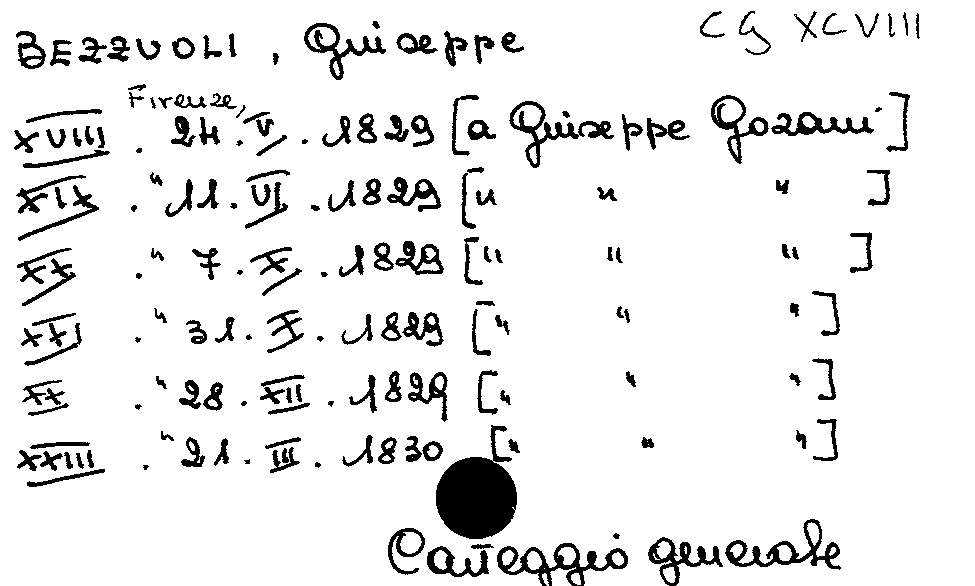 BEZZUOLI, Giuseppe CG XCVIII
Firenze,
XVIII . 24 . V . 1829 [a Giuseppe Gozani]
XIX . " 11 . VI . 1829 [" " "]
XX . " 7 . X . 1829 [" " "]
XXI . " 31 . X . 1829 [" " "]
XX . " 28 . XII . 1829 [" " "]
XXIII . " 21 . III . 1830 [" " "]
Carteggio generale